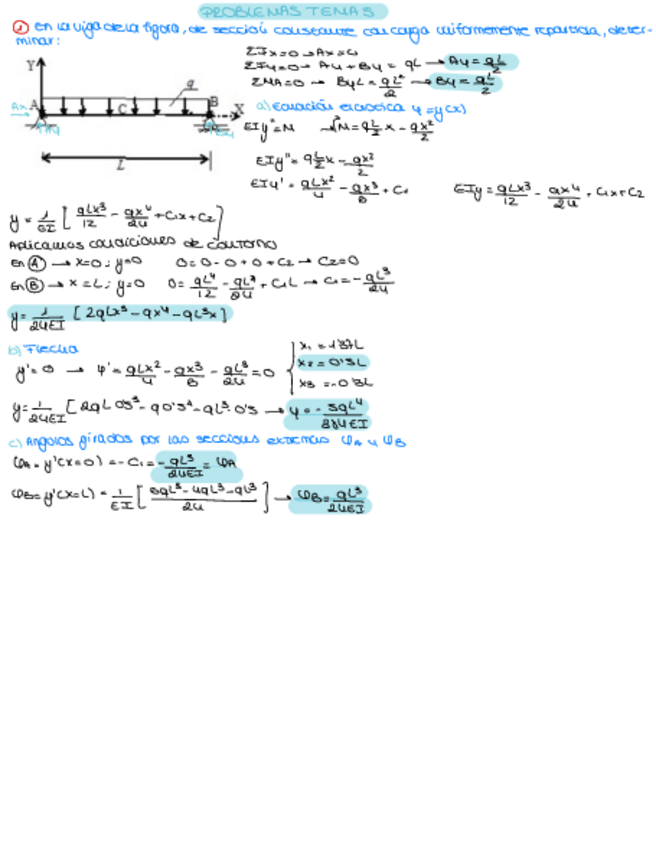 PROBLEMAS TEMA 5
1 En la viga de la figura, de sección constante con carga uniformemente repartida, deter-
minar:
ΣFx=0 → Ax=0
ΣFy=0 → Ay + By = qL → Ay = qL/2
ΣMA=0 → By L = qL²/2 → By = qL/2
Y
q
Ax A C B X
L
a) Ecuación elástica y=y(x)
EIy''=M → M = qL/2 x - qx²/2
EIy'' = qL/2 x - qx²/2
EIy' = qLx²/4 - qx³/6 + C1
EIy = qLx³/12 - qx⁴/24 + C1x + C2
y = 1/EI [ qLx³/12 - qx⁴/24 + C1x + C2 ]
Aplicamos condiciones de contorno
En A → x=0; y=0 0 = 0 - 0 + 0 + C2 → C2=0
En B → x=L; y=0 0 = qL⁴/12 - qL⁴/24 + C1L → C1 = - qL³/24
y = 1/24EI [ 2qLx³ - qx⁴ - qL³x ]
b) Flecha
y'=0 → y' = qLx²/4 - qx³/6 - qL³/24 = 0
x1 = 1'37L
x2 = 0'5L
x3 = -0'3L
y = 1/24EI [ 2qL 0'5³ - q0'5⁴ - qL³·0'5 → y = - 5qL⁴/384EI
c) Ángulos girados por las secciones extremas φA y φB
φA = y'(x=0) = - C1 = - qL³/24EI = φA
φB = y'(x=L) = 1/EI [ 6qL³ - 4qL³ - qL³/24 ] → φB = qL³/24EI